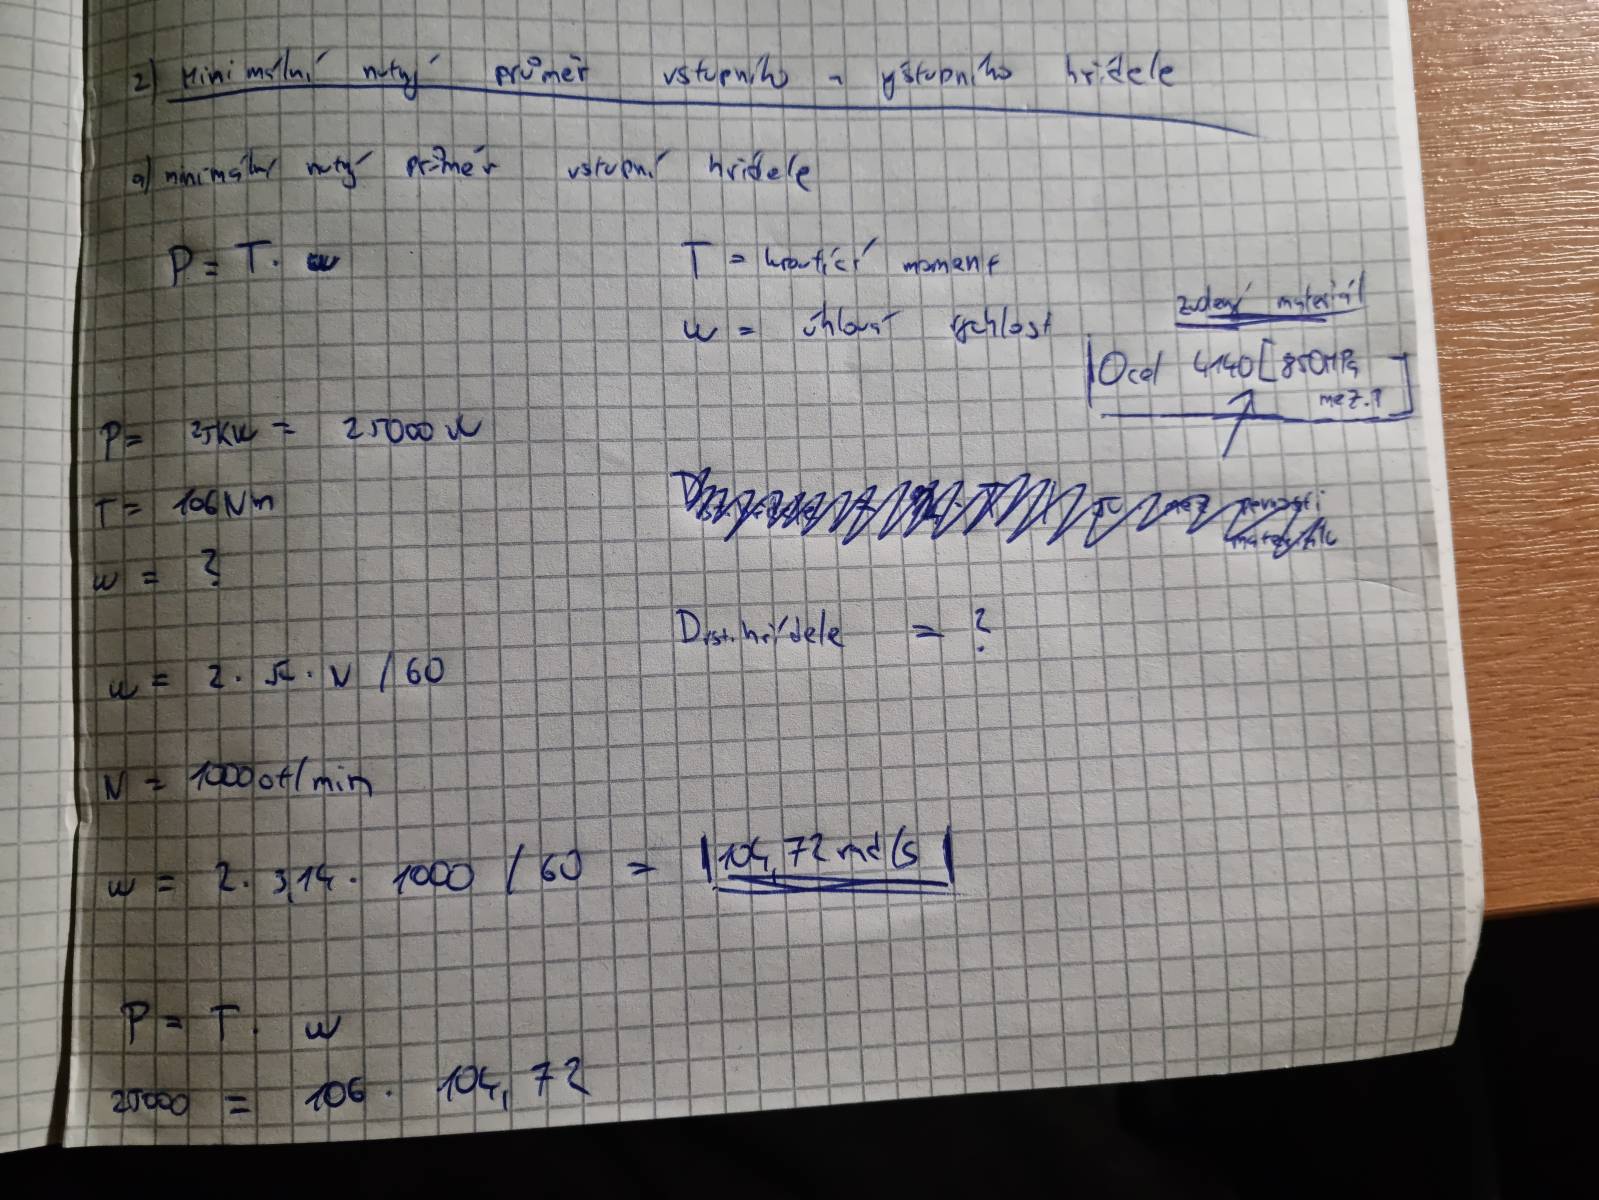 2) Minimální nutný průměr vstupního a výstupního hřídele
a) minimální nutý průměr vstupní hřídele
P = T. w
T = kroutící moment
w = úhlová rychlost
zvolený materiál
Ocel 4140 [850MPa
mez.?]
P = 25KW = 25000 W
T = 106Nm
w = ?
mez pevnosti
materiálu
Dvst.hřídele = ?
w = 2. π. N / 60
N = 1000ot/min
w = 2. 3,14. 1000 / 60 = 104,72 rad/s
P = T. w
25000 = 106. 104,72